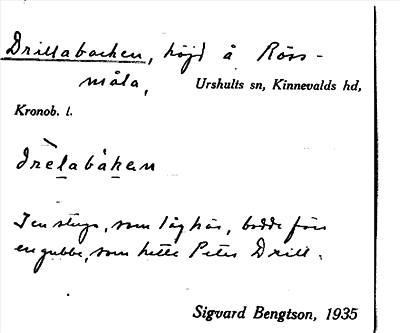 Drillabacken, höjd å Röss-
måla,
Urshults sn, Kinnevalds hd,
Kronob. l.
drelabákan
I en stuga, som låg här, bodde förr
en gubbe, som hette Peter Drill.
Sigvard Bengtson, 1935